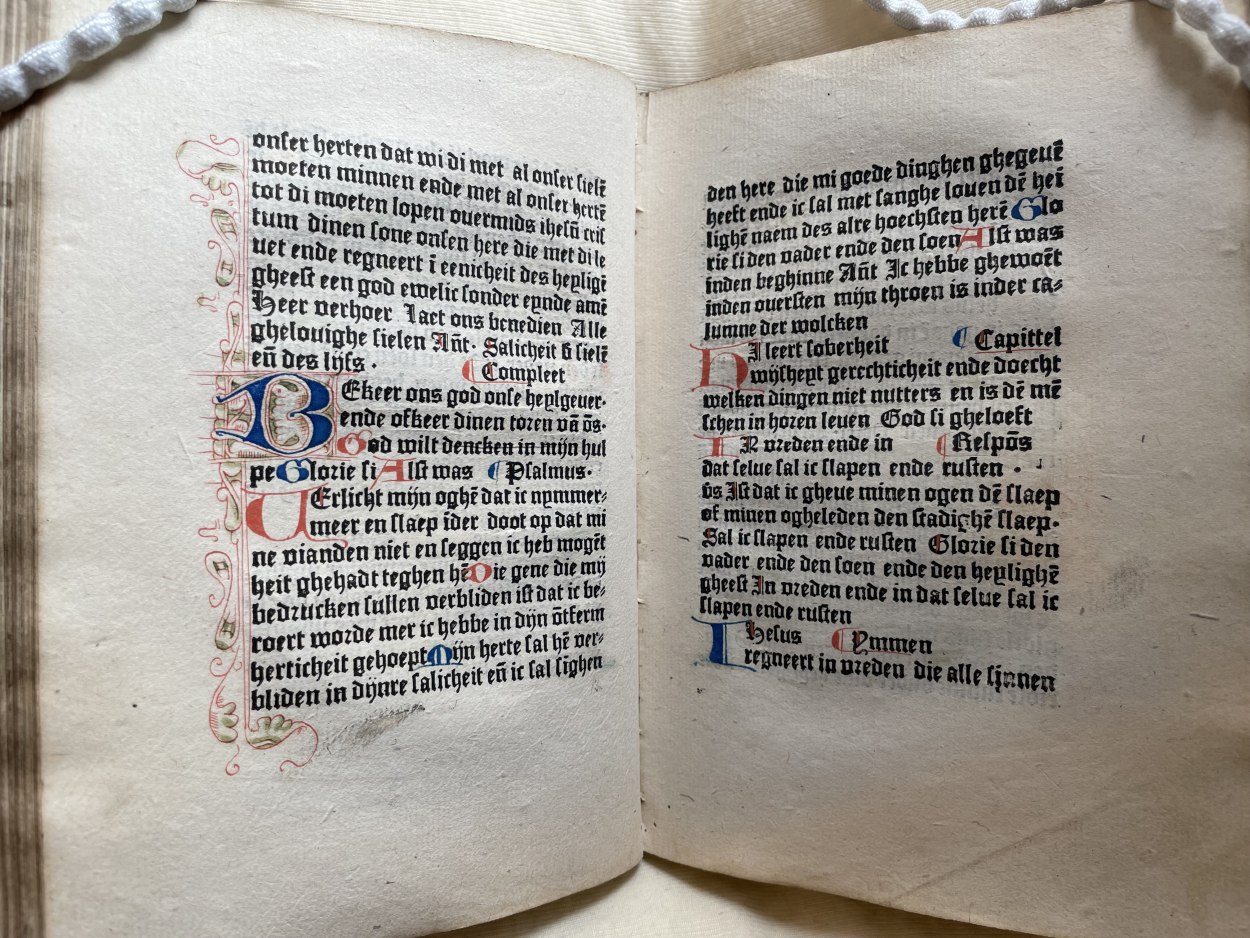 onser herten dat wi di met al onser sielē
moeten minnen ende met al onser hertē
tot di moeten lopen ouermids ihesū cris
tum dinen sone onsen here die met di le
uet ende regneert ī eenicheit des heyligē
gheest een god ewelic sonder eynde amē
Heer verhoer Laet ons benedien Alle
ghelouighe sielen Añt. Salicheit ƃ sielē
eñ des lijfs.
Compleet
BEkeer ons god onse heylgeuer.
ende ofkeer dinen toren vā ōs.
God wilt dencken in mijn hul
pe Glorie si Alst was Psalmus.
VErlicht mijn oghē dat ic nymmer⸗
meer en slaep īder doot op dat mi
ne vianden niet en seggen ic heb mogēt
heit ghehadt teghen hē Die gene die mij
bedrucken sullen verbliden ist dat ic be⸗
roert worde mer ic hebbe in dijn ōtferm
herticheit gehoept Mijn herte sal hē ver⸗
bliden in dijnre salicheit eñ ic sal sīghen
den here die mi goede dinghen ghegeuē
heeft ende ic sal met sanghe louen dē hei
lighē naem des alre hoechsten herē Glo
rie si den vader ende den soen Alst was
inden beghinne Añt Ic hebbe ghewoēt
inden ouersten mijn throen is inder ca⸗
lumne der wolcken
Capittel
HI leert soberheit
wijsheyt gerechticheit ende doecht
welken dingen niet nutters en is dē mē
schen in horen leuen God si gheloeft
IN vreden ende in Respōs
dat selue sal ic slapen ende rusten .
v̄s Ist dat ic gheue minen ogen dē slaep
of minen ogheleden den stadighē slaep.
Sal ic slapen ende rusten Glorie si den
vader ende den soen ende den heylighē
gheest In vreden ende in dat selue sal ic
slapen ende rusten
IHesus Ymmen
regneert in vreden die alle sinnen